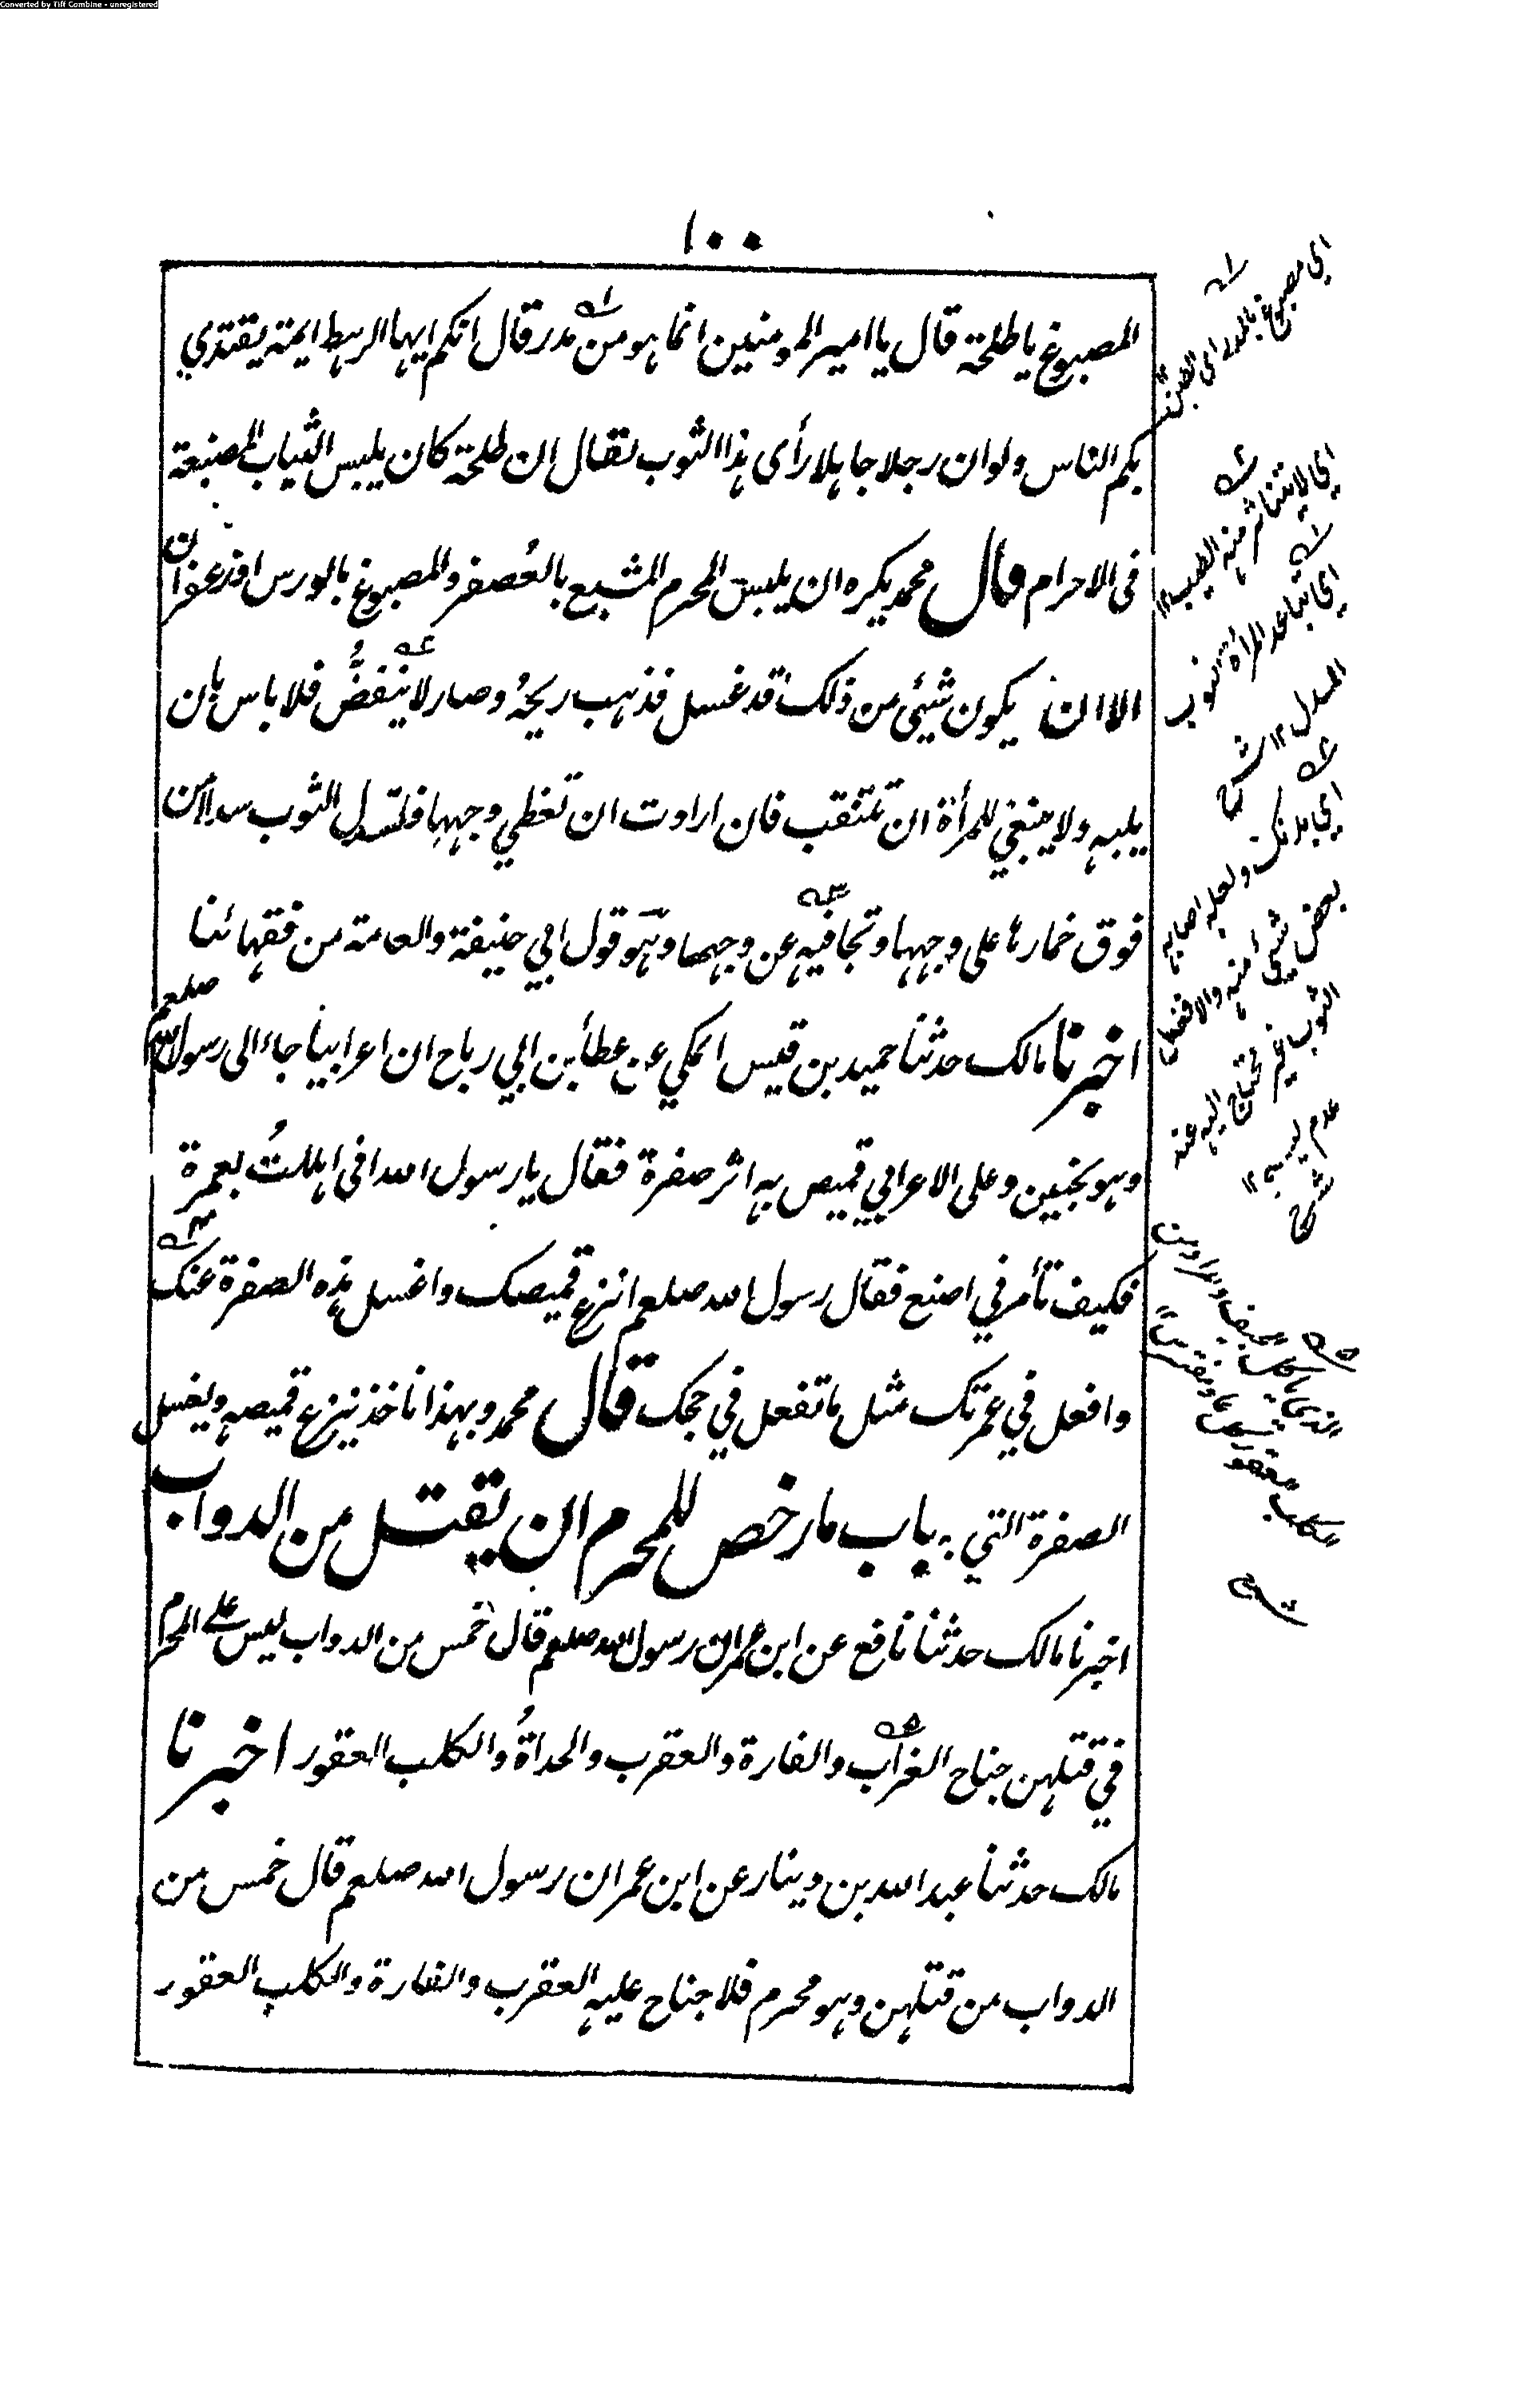 Converted by Tiff Combine - unregistered
١٠٠
المصبوغ يا طلحة قال يا امير المومنين انما هو من مدر قال انكم ايها الرهط ايمة يقتدي
بكم الناس ولو ان رجلا جاهلا رأى هذا الثوب لقال ان طلحة كان يلبس الثياب المصبغة
فى الاحرام قال محمد يكره ان يلبس المحرم المشبع بالعُصفر والمصبوغ بالورس او زعفران
الا ان يكون شيئ من ذلك قد غسل فذهب ريحُه وصار لا ينفضُ فلا باس بان
يلبسه ولا ينبغي للمرأة ان تتنقب فان ارادت ان تغطي وجهها فلتسدل الثوب سدلا من
فوق خمارها على وجهها وتجافيه عن وجهها وهو قول ابي حنيفة والعامة من فقهائنا
اخبرنا مالك حدثنا حميد بن قيس المكي عن عطأ بن ابي رباح ان اعرابياً جاء الى رسول الله صلعم
وهو بحنين وعلى الاعرابي قميص به اثر صفرة فقال يا رسول الله انى اهللتُ بعمرة
فكيف تأمرني اصنع فقال رسول الله صلعم انزع قميصك واغسل هذه الصفرة عنك
وافعل في عمرتك مثل ما تفعل في حجك قال محمد وبهذا ناخذ ينزع قميصه ويغسل
الصفرة التي به باب ما رخص للمحرم ان يقتل من الدواب
اخبرنا مالك حدثنا نافع عن ابن عمر ان رسول الله صلعم قال خمس من الدواب ليس على المحرم
في قتلهن جناح الغراب والفارة والعقرب والحداةُ والكلب العقور اخبرنا
مالك حدثنا عبد الله بن دينار عن ابن عمر ان رسول الله صلعم قال خمس من
الدواب من قتلهن وهو محرم فلا جناح عليه العقرب والفارة والكلب العقور
اي مصبوغ بالمدر اي
اي لا يتناثر منه الطيب ١٢
اي تباعد المرأة
اي بدنك ولعله اصابه
بعض شيئ منه والا فغسل
الثوب غير محتاج اليه عند
عدم لبسه ١٢